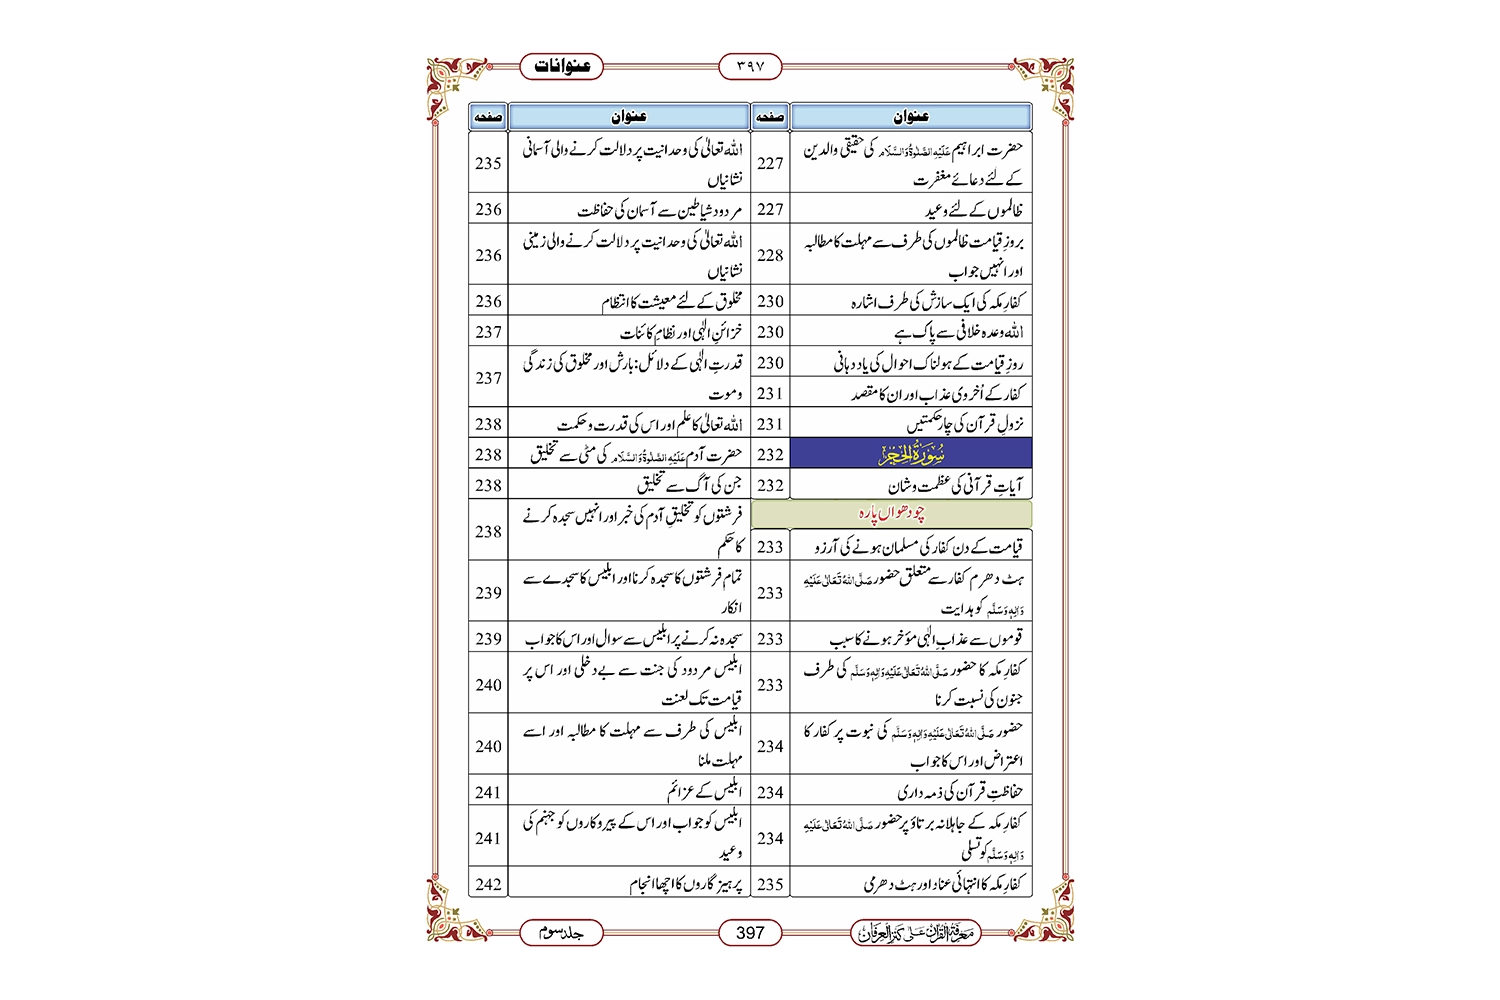 عنوانات
۳۹۷
عنوان صفحہ
حضرت ابراہیم عَلَیْہِ الصَّلٰوۃُ وَالسَّلَام کی حقیقی والدین
کے لئے دعائے مغفرت 227
ظالموں کے لئے وعید 227
بروزِ قیامت ظالموں کی طرف سے مہلت کا مطالبہ
اور انہیں جواب 228
کفارِ مکہ کی ایک سازش کی طرف اشارہ 230
اللہ وعدہ خلافی سے پاک ہے 230
روزِ قیامت کے ہولناک احوال کی یاد دہانی 230
کفار کے اُخروی عذاب اور ان کا مقصد 231
نزولِ قرآن کی چار حکمتیں 231
سُوْرَۃُ الْحِجْر 232
آیاتِ قرآنی کی عظمت و شان 232
چودھواں پارہ
قیامت کے دن کفار کی مسلمان ہونے کی آرزو 233
ہٹ دھرم کفار سے متعلق حضور صَلَّی اللہُ تَعَالٰی عَلَیْہِ
وَاٰلِہٖ وَسَلَّم کو ہدایت 233
قوموں سے عذابِ الٰہی مؤخر ہونے کا سبب 233
کفارِ مکہ کا حضور صَلَّی اللہُ تَعَالٰی عَلَیْہِ وَاٰلِہٖ وَسَلَّم کی طرف
جنون کی نسبت کرنا 233
حضور صَلَّی اللہُ تَعَالٰی عَلَیْہِ وَاٰلِہٖ وَسَلَّم کی نبوت پر کفار کا
اعتراض اور اس کا جواب 234
حفاظتِ قرآن کی ذمہ داری 234
کفارِ مکہ کے جاہلانہ برتاؤ پر حضور صَلَّی اللہُ تَعَالٰی عَلَیْہِ
وَاٰلِہٖ وَسَلَّم کو تسلی 234
کفارِ مکہ کا انتہائی عناد اور ہٹ دھرمی 235
عنوان صفحہ
اللہ تعالیٰ کی وحدانیت پر دلالت کرنے والی آسمانی
نشانیاں 235
مردود شیاطین سے آسمان کی حفاظت 236
اللہ تعالیٰ کی وحدانیت پر دلالت کرنے والی زمینی
نشانیاں 236
مخلوق کے لئے معیشت کا انتظام 236
خزائنِ الٰہی اور نظامِ کائنات 237
قدرتِ الٰہی کے دلائل: بارش اور مخلوق کی زندگی
و موت 237
اللہ تعالیٰ کا علم اور اس کی قدرت و حکمت 238
حضرت آدم عَلَیْہِ الصَّلٰوۃُ وَالسَّلَام کی مٹی سے تخلیق 238
جن کی آگ سے تخلیق 238
فرشتوں کو تخلیقِ آدم کی خبر اور انہیں سجدہ کرنے
کا حکم 238
تمام فرشتوں کا سجدہ کرنا اور ابلیس کا سجدے سے
انکار 239
سجدہ نہ کرنے پر ابلیس سے سوال اور اس کا جواب 239
ابلیس مردود کی جنت سے بے دخلی اور اس پر
قیامت تک لعنت 240
ابلیس کی طرف سے مہلت کا مطالبہ اور اسے
مہلت ملنا 240
ابلیس کے عزائم 241
ابلیس کو جواب اور اس کے پیروکاروں کو جہنم کی
وعید 241
پرہیزگاروں کا اچھا انجام 242
معرفۃ القرآن علی کنز العرفان
397
جلد سوم